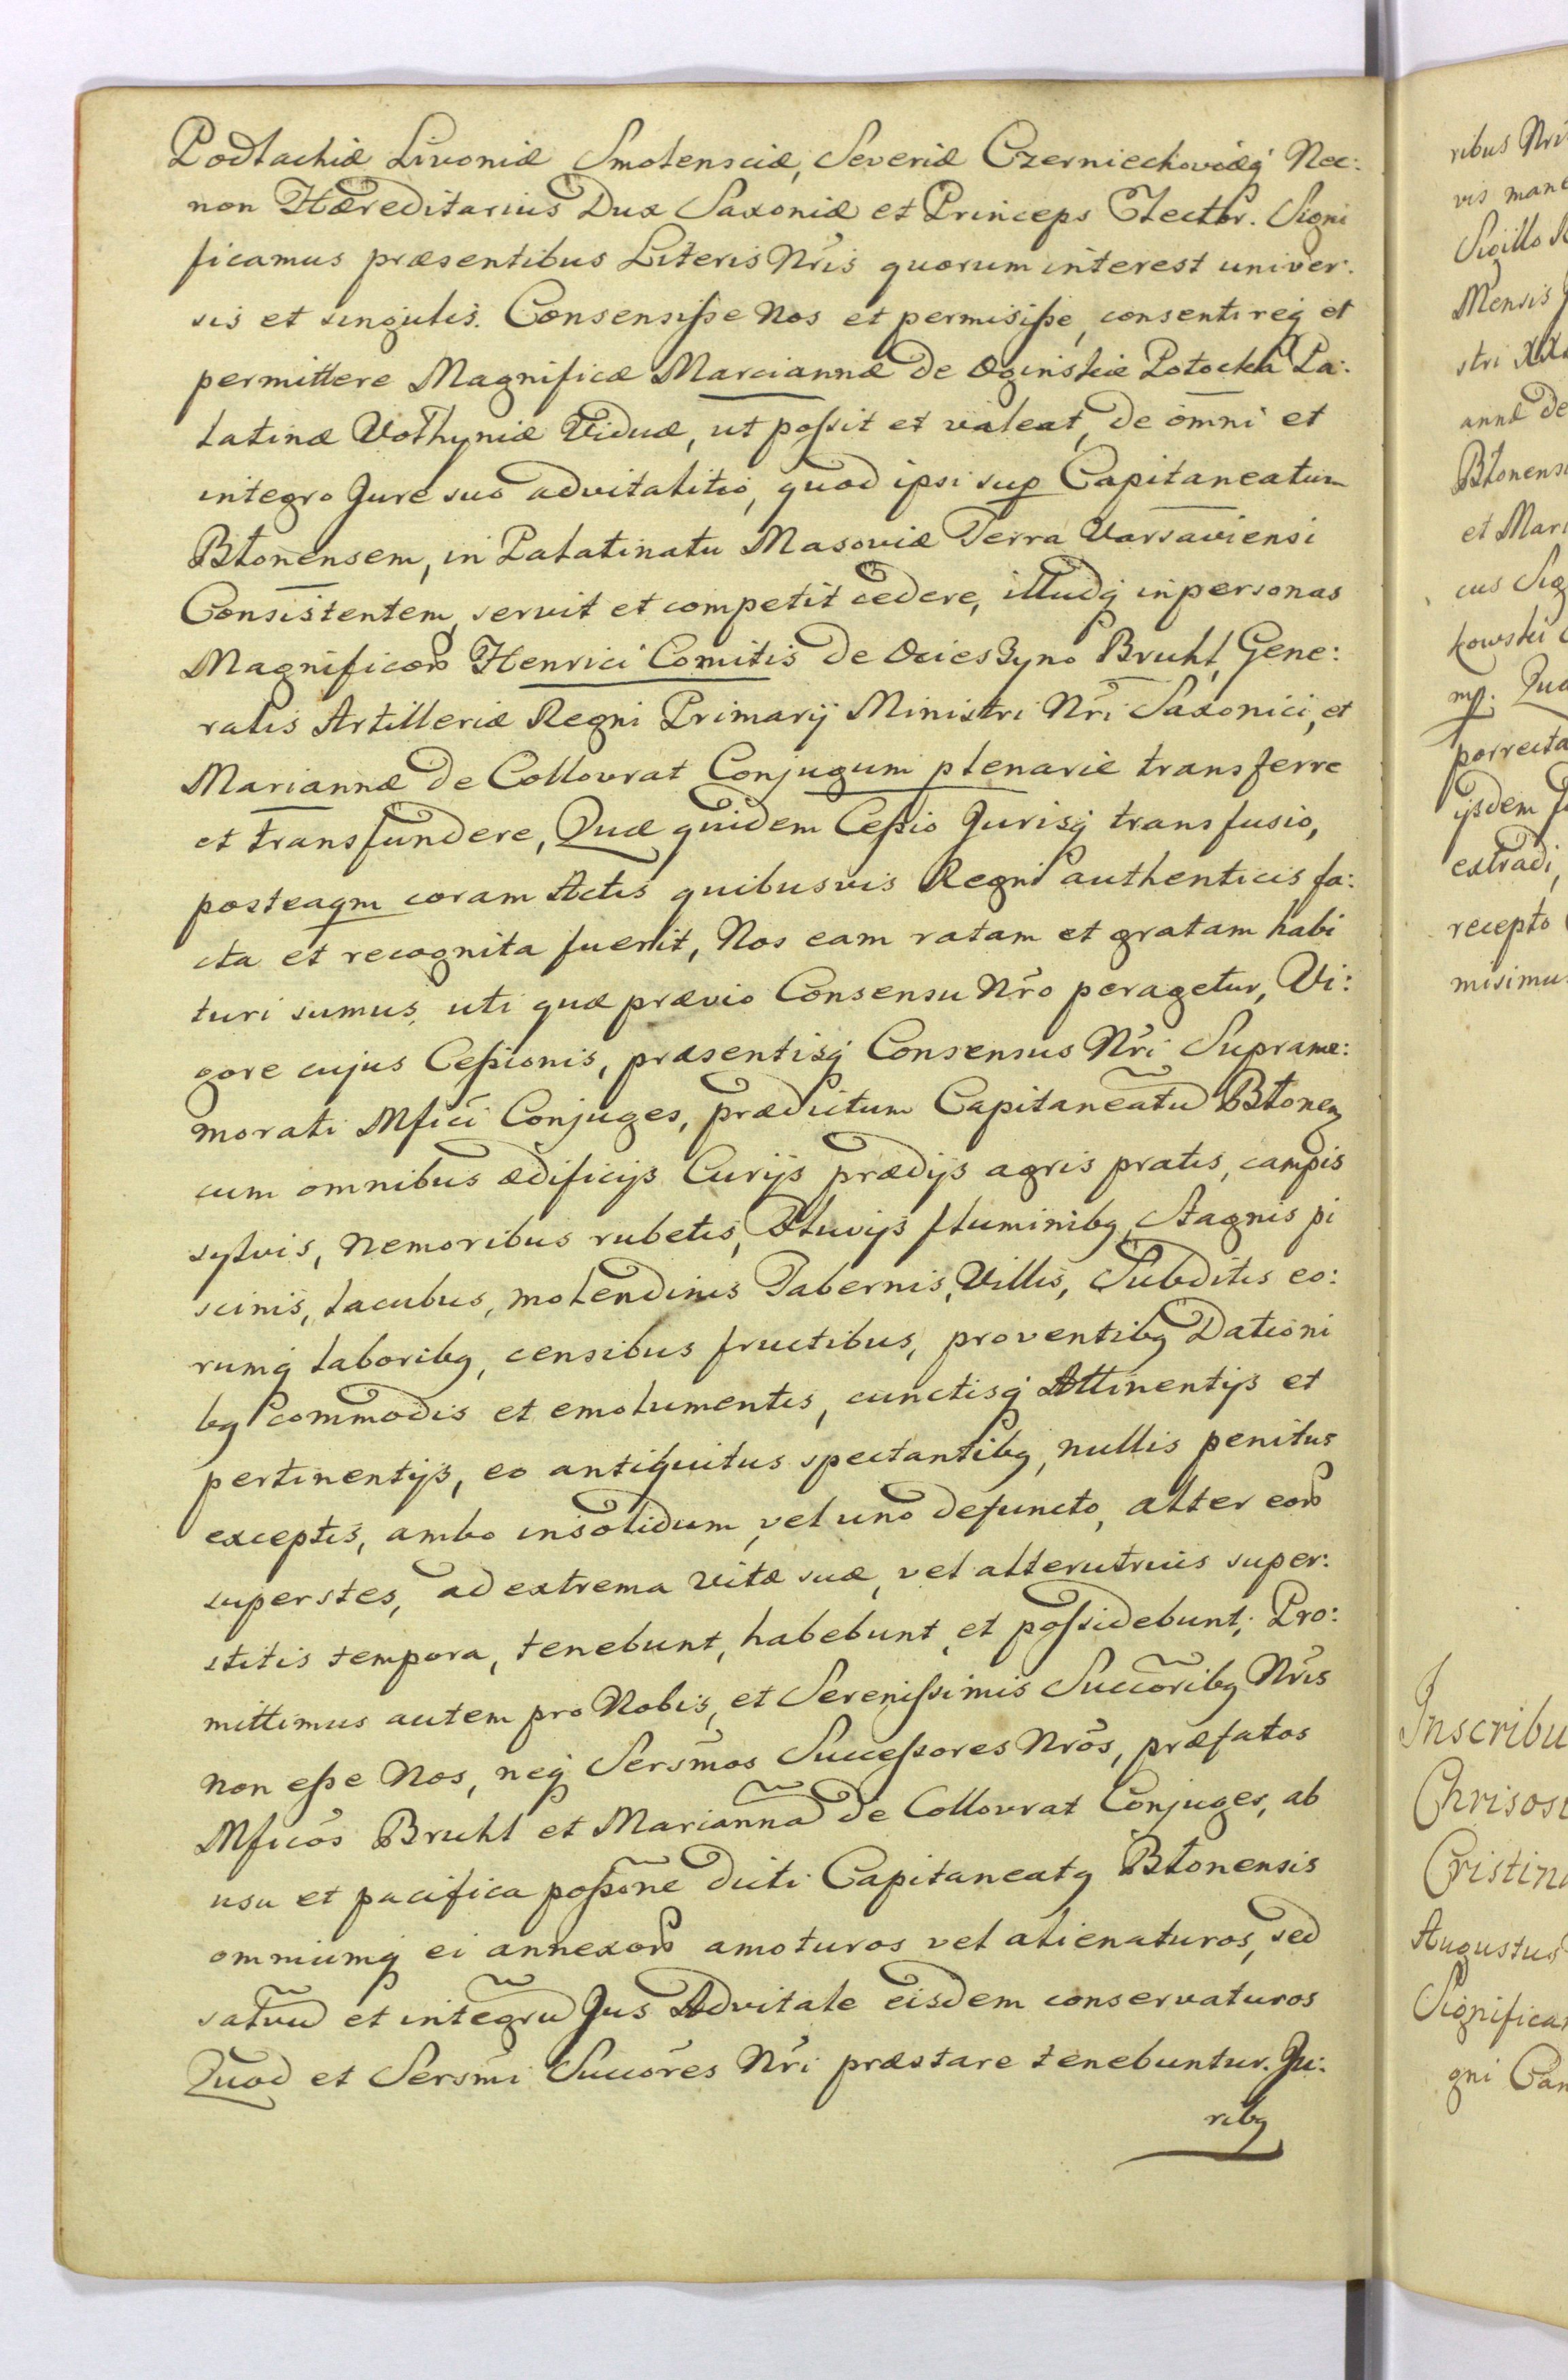 Podlachiæ Livoniæ Smolensciæ, Severiæ Czerniechoviæq́ Nec:
non Hæreditarius Dux Saxoniæ et Princeps Elector. Signi
ficamus præsentibus Literis Nr̃is quorum interest univer:
sis et singulis. Consensiſse Nos et permisiſse, consentireq́ et
permittere Magnificæ Marciannæ de Oginskie Potocka Pa:
latinæ Volhyniæ Viduæ, ut poſsit et valeat, de omni et
integro Jure suo advitalitio, quod ipsi sup Capitaneatum
Błonensem, in Palatinatu Masoviæ Terra Varsaviensi
Consistentem, servit et competit cedere, illudq́ in personas
Magnificoꝝ Henrici Comitis de Ocieszyno Bruhl, Gene:
ralis Artilleriæ Regni Primarij Ministri Nr̃i Saxonici, et
Mariannæ de Collovrat Conjugum plenarie transferre
et transfundere, Quæ quidem Ceſsio Jurisq́ transfusio,
posteaqm coram Actis quibusvis Regni authenticis fa:
cta et recognita fuerit, Nos eam ratam et gratam habi
turi sumus, uti quæ prævio Consensu Nr̃o peragetur, Vi:
gore cujus Ceſsionis, præsentisq́ Consensus Nr̃i Suprame:
morati Mfici Conjuges, prædictum Capitaneatũ Błonenꝫ
cum omnibus ædificijs Curijs prædijs agris pratis, campis
sylvis, nemoribus rubetis, Fluvijs fluminibꝫ, Stagnis pi
scinis, lacubus, molendinis Tabernis, Villis, Subditis eo:
rumq́ laboribꝫ, censibus fructibus, proventibꝫ Dationi
bꝫ commodis et emolumentis, cunctisq́ Attinentijs et
pertinentijs, eo antiquitus spectantibꝫ, nullis penitus
exceptis, ambo insolidum, vel uno defuncto, alter eoꝝ
superstes, ad extrema vitæ suæ, vel alterutrius super:
stitis tempora, tenebunt, habebunt, et poſsidebunt; Pro:
mittimus autem pro Nobis, et Sereniſsimis Succoribꝫ Nr̃is
non eſse Nos, neq́ Sersmos Succeſsores Nr̃os, præfatos
Mficos Bruhl et Mariannã de Collovrat Conjuges, ab
usu et pacifica poſsõne dicti Capitaneatꝫ Błonensis
omniumq́ ei annexoꝝ amoturos vel alienaturos, sed
salvũ et integrũ Jus Advitale eisdem conservaturos
Quod et Sersmi Succores Nr̃i præstare tenebuntur. Ju:
ribꝫ
ribus Nri
vis mane
Sigillo
Mensis
stri XX
annæ de
Błonens
et Mari
cus Sig
kowski
mp. Qua
porrecta
ijsdem
extradi,
recepto
misimu
Inscribu
Chrisos
Cristin
Augustus
Significa
gni Can